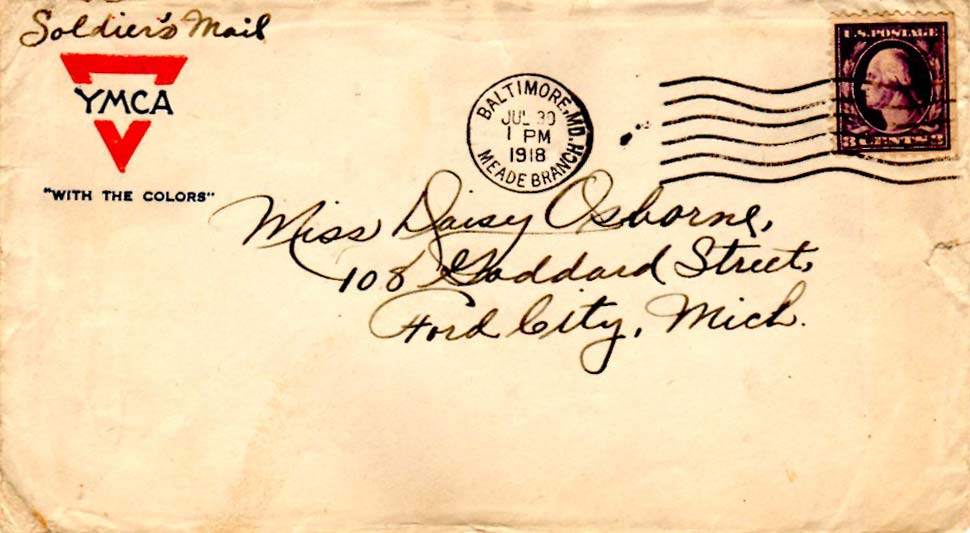 Soldier's Mail
YMCA
"WITH THE COLORS"
BALTIMORE, MD.
JUL 30
1 PM
1918
MEADE BRANCH
U.S. POSTAGE
3 CENTS 3
Miss Daisy Osborne,
108 Goddard Street,
Ford City, Mich.